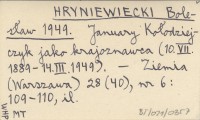 HRYNIEWIECKI Bole-
sław 1949. January Kołodziej-
czyk jako krajoznawca (10.VII.
1889-14.III.1949). - Ziemia
(Warszawa) 28 (40), nr 6:
109-110, il.
WHF MT